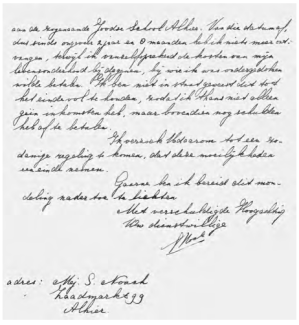 aan de zogenaamde Joodse School Alhier. Van die datum af,
dus sinds ongeveer 2 jaar en 8 maanden heb ik niets meer ont-
vangen, terwijl ik vanzelfsprekend de kosten van mijn
levensonderhoud bij degenen, bij wie ik was ondergedoken
wilde betalen. Ik ben niet in staat geweest dit tot
het einde vol te houden, zodat ik thans niet alleen
geen inkomsten heb, maar bovendien nog schulden
heb af te betalen.
Ik verzoek U daarom tot een zo-
danige regeling te komen, dat deze moeilijkheden
een einde nemen.
Gaarne ben ik bereid dit mon-
deling nader toe te lichten
Met verschuldigde Hoogachting
Uw dienstwillige
adres: Mej. S. Noach
Zaadmarkt 99
Alhier